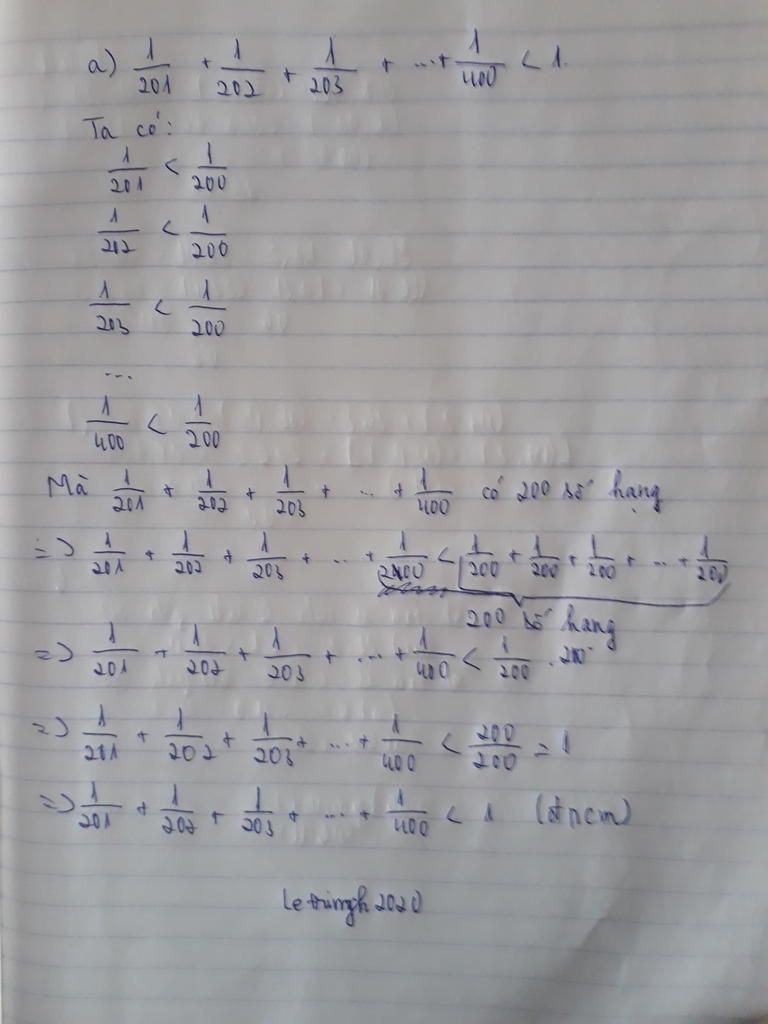 a) 1/201 + 1/202 + 1/203 + ... + 1/400 < 1.
Ta có:
1/201 < 1/200
1/202 < 1/200
1/203 < 1/200
...
1/400 < 1/200
Mà 1/201 + 1/202 + 1/203 + ... + 1/400 có 200 số hạng
=> 1/201 + 1/202 + 1/203 + ... + 1/400 < 1/200 + 1/200 + 1/200 + ... + 1/200
200 số hạng
=> 1/201 + 1/202 + 1/203 + ... + 1/400 < 1/200 . 200
=> 1/201 + 1/202 + 1/203 + ... + 1/400 < 200/200 = 1
=> 1/201 + 1/202 + 1/203 + ... + 1/400 < 1 (đpcm)